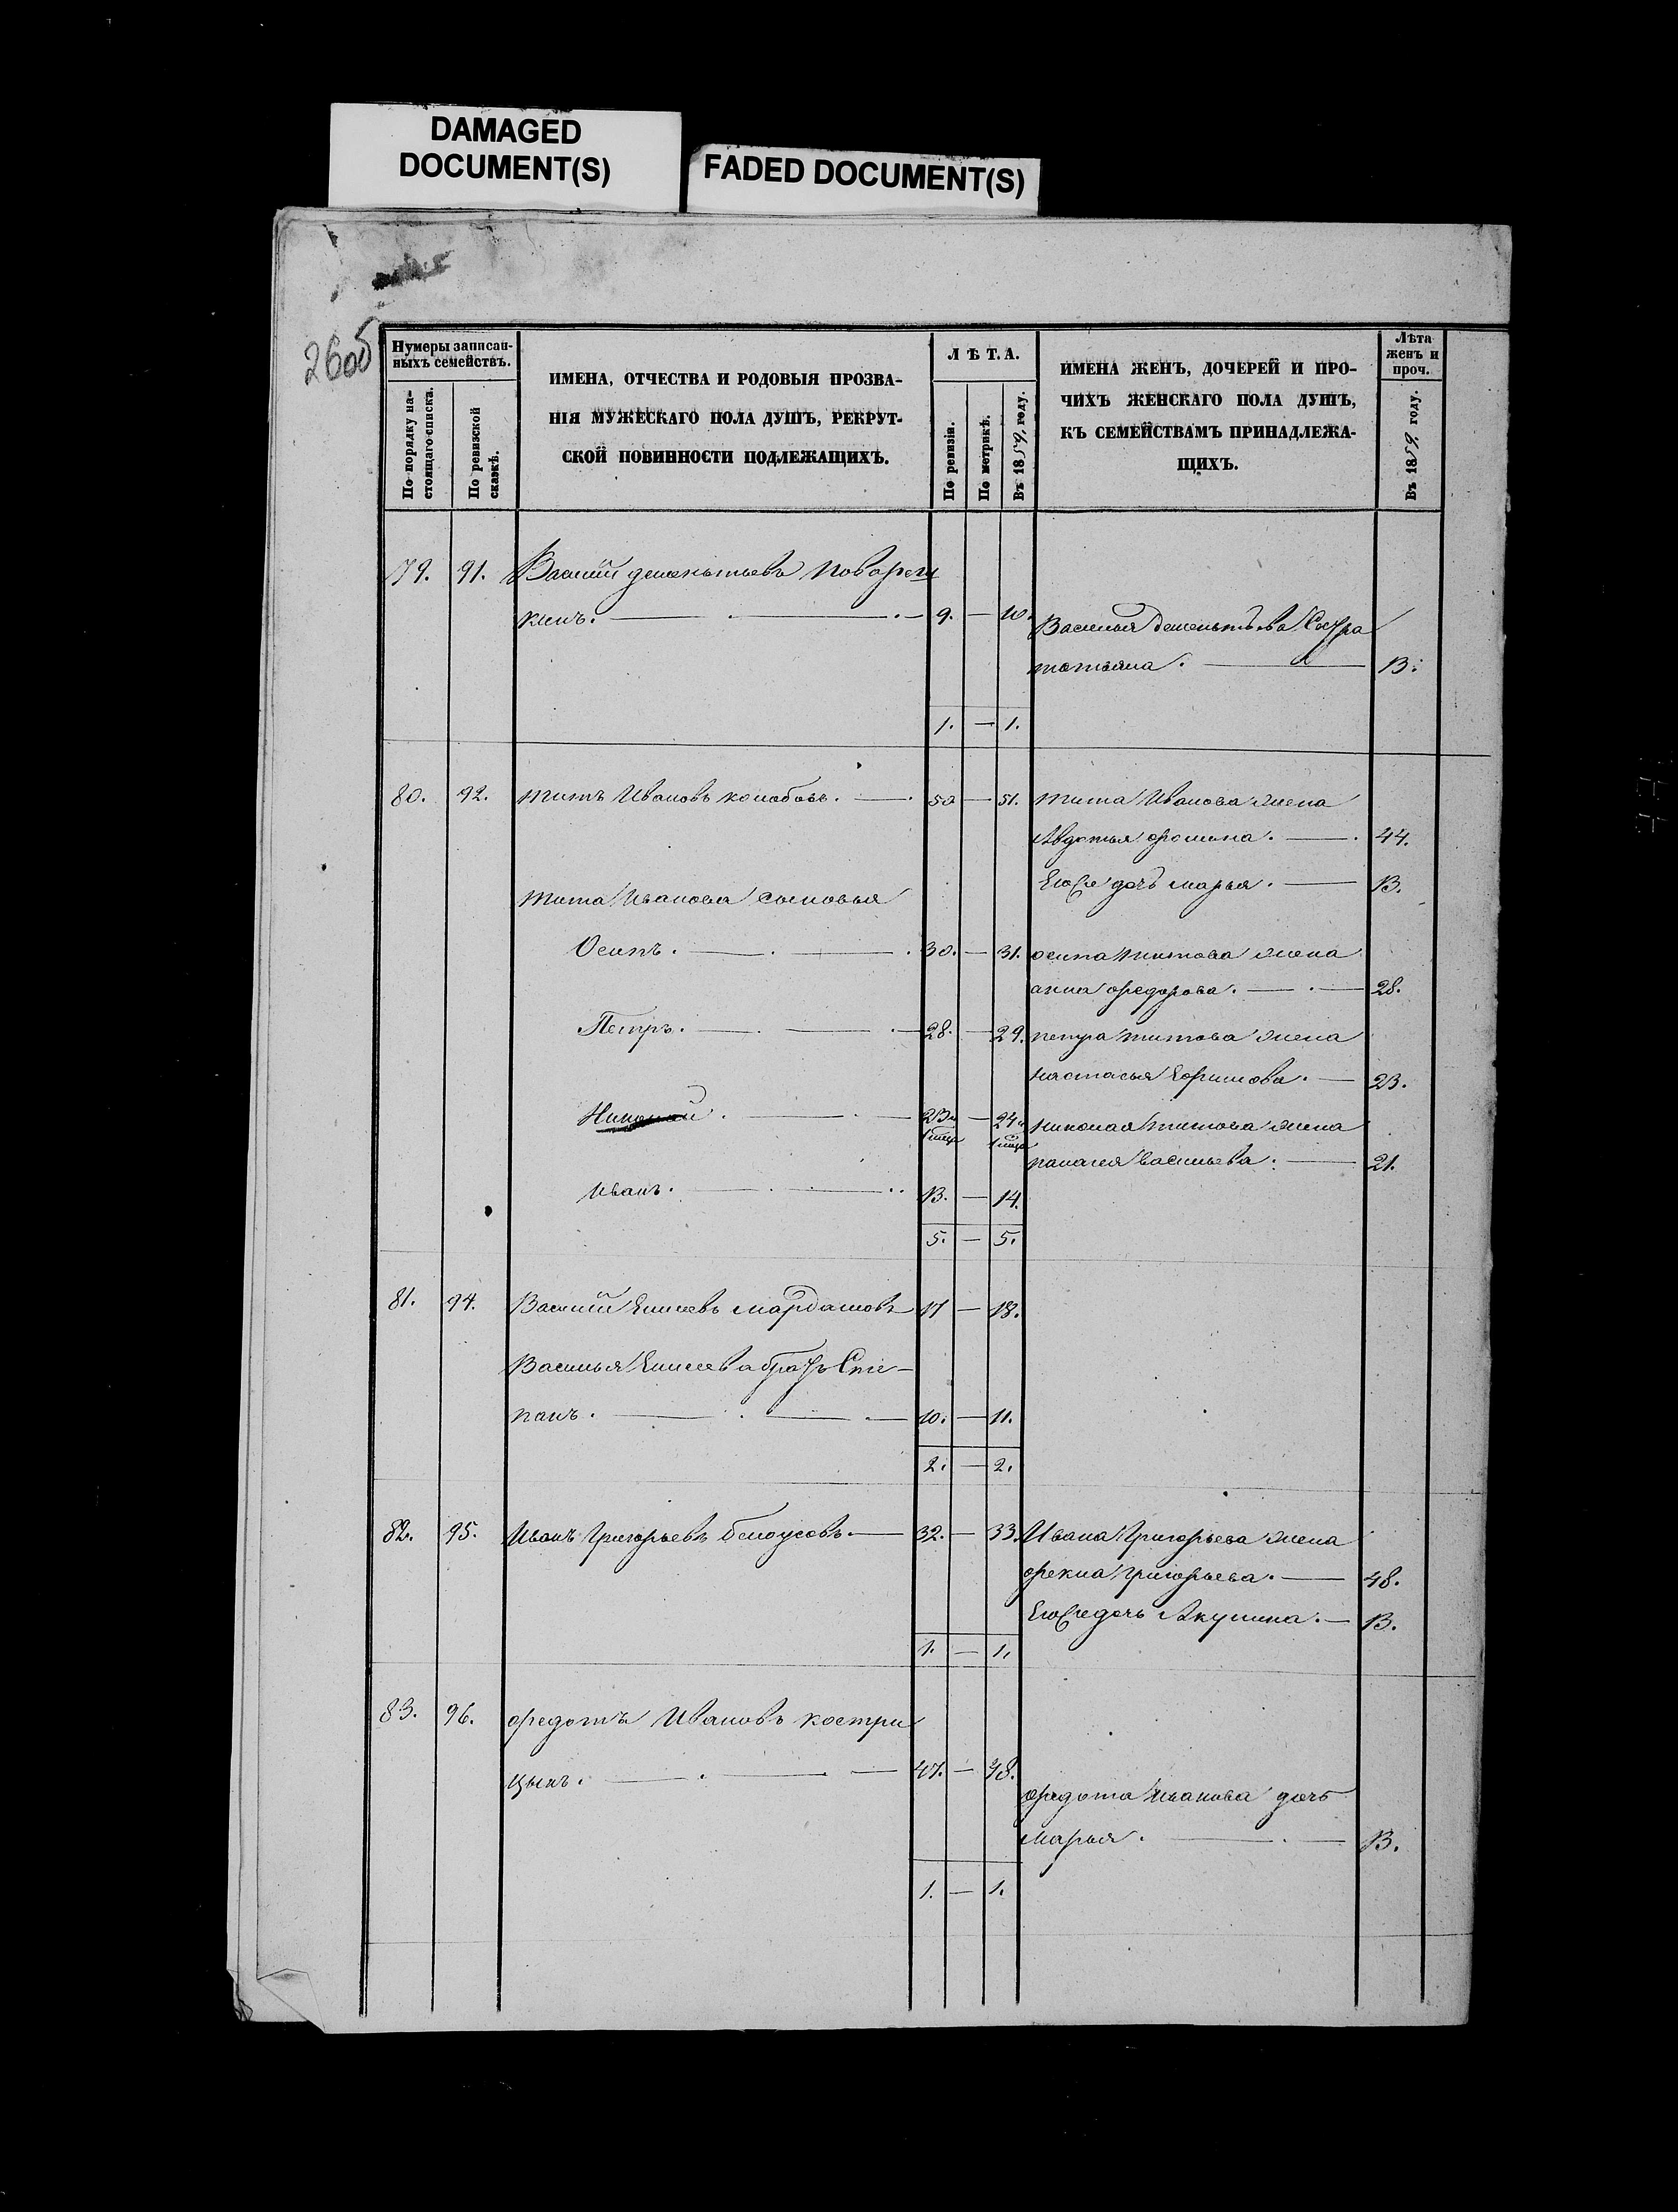 DAMAGED
DOCUMENT(S)
FADED DOCUMENT(S)
260об
Нумеры записан-
ныхъ семействъ.
По порядку на-
стоящаго списка.
По ревизской
сказкѣ.
ИМЕНА, ОТЧЕСТВА И РОДОВЫЯ ПРОЗВА-
НІЯ МУЖЕСКАГО ПОЛА ДУШЪ, РЕКРУТ-
СКОЙ ПОВИННОСТИ ПОДЛЕЖАЩИХЪ.
Л Ѣ Т. А.
По ревизіи.
По метрикѣ.
Въ 1859, году.
ИМЕНА ЖЕНЪ, ДОЧЕРЕЙ И ПРО-
ЧИХЪ ЖЕНСКАГО ПОЛА ДУШЪ,
КЪ СЕМЕЙСТВАМЪ ПРИНАДЛЕЖА-
ЩИХЪ.
Лѣта
женъ и
проч.
Въ 1859, году.
79. 91. Василій дементьевъ
кинъ. 9. — 10.
Василья Дементьева Сестра
татьяна. — 13.
1. — 1.
80. 92. титъ Ивановъ колобовъ. — 50 — 51. тита Иванова жена
Авдотья фомина. — 44.
Его Се дочь марья. — 13.
тита Иванова сыновья
Осипъ. — 30. — 31. осипа титова жена
анна федорова. — 28.
Петръ. — 28. — 29. петра титова жена
настасья Ефимова. — 23.
Николай. — 23 — 24 николая титова жена
палагея васильева. — 21.
иванъ. — 13. — 14.
5. — 5.
81. 94. Василій Елисеевъ мардашовъ 17 — 18.
Василья Елисеева братъ Сте-
панъ. — 10. — 11.
2. — 2.
82. 95. Иванъ Григорьевъ белоусовъ — 32. — 33. Ивана Григорьева жена
фекла григорьева. — 48.
Его Се дочь Акулина. — 13.
1. — 1.
83. 96. федотъ Ивановъ костри
цынъ. — 47. — 48.
федота иванова дочь
марья. — 13.
1. — 1.